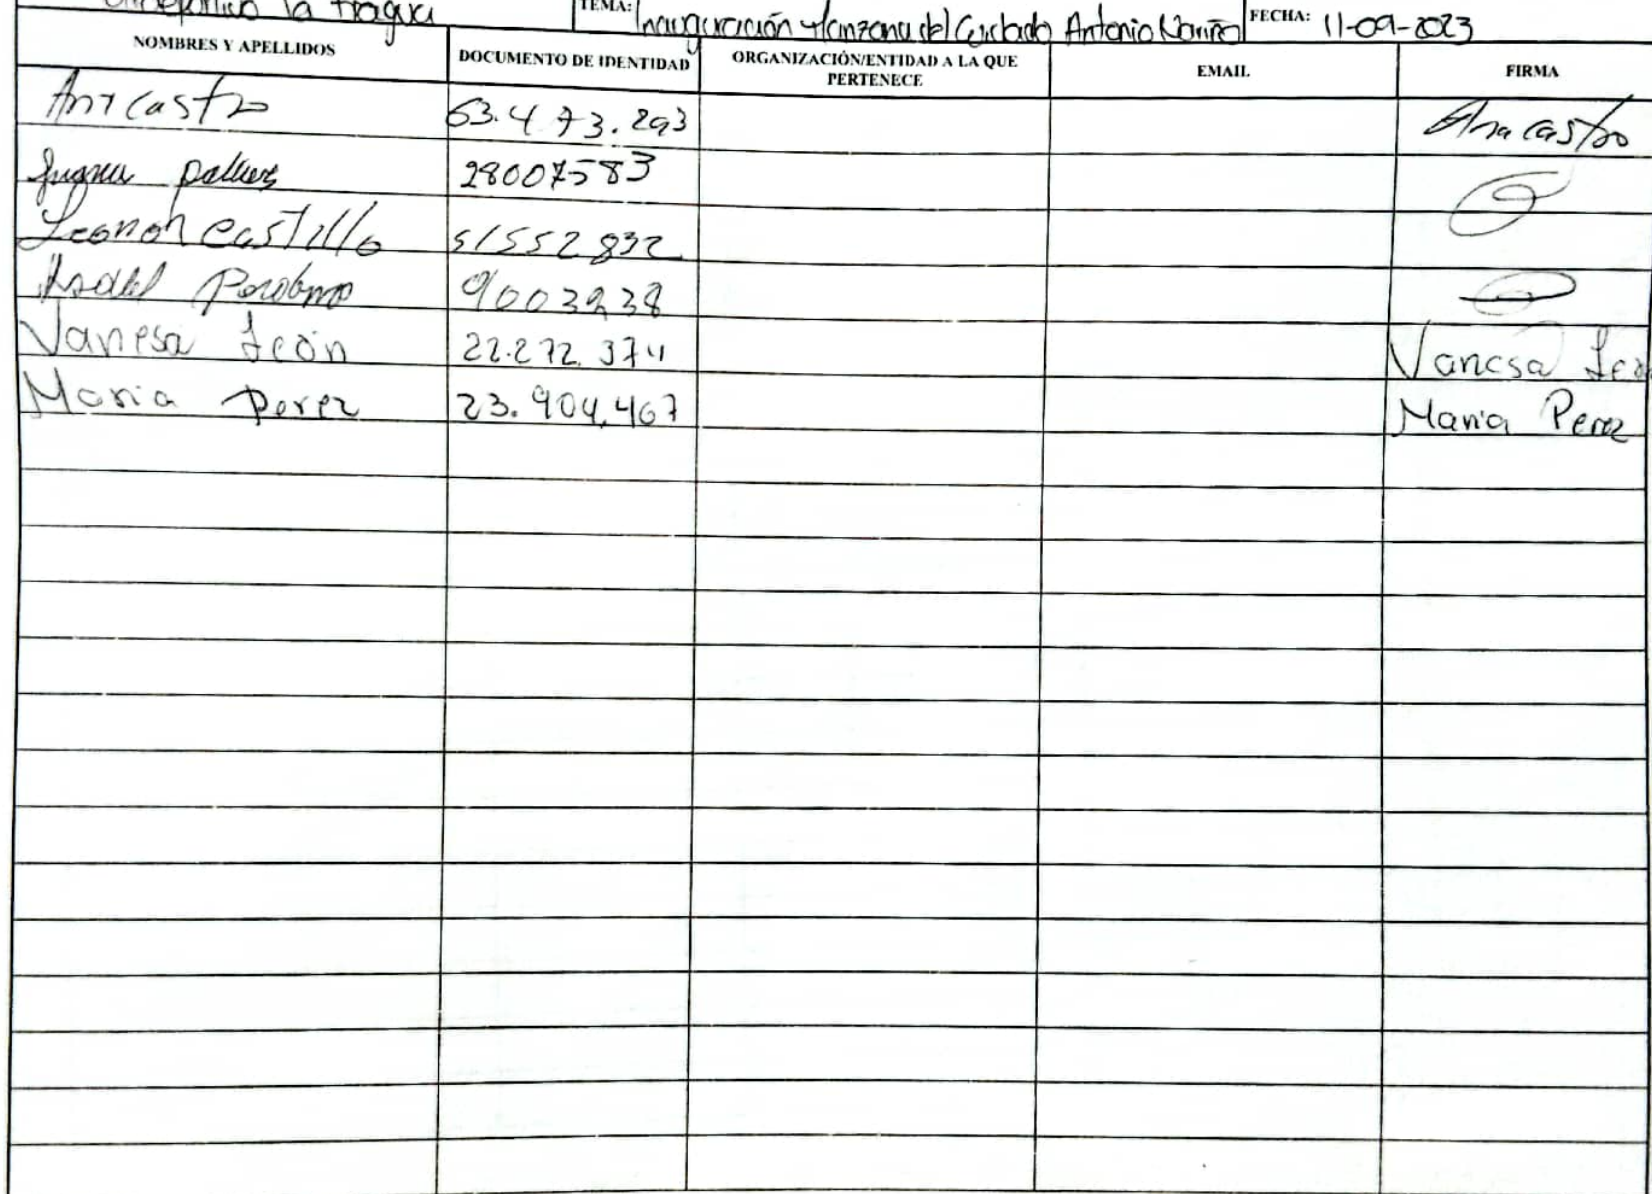 la fragua TEMA: Inauguración Manzana del Cuidado Antonio Nariño FECHA: 11-09-2023
NOMBRES Y APELLIDOS DOCUMENTO DE IDENTIDAD ORGANIZACIÓN/ENTIDAD A LA QUE PERTENECE EMAIL FIRMA
Ana Castro 63.473.293 Ana Castro
28007583
Leonor Castillo 51552832
9003238
Vanesa León 22.272.374 Vanesa Leó
Maria Perez 23.904.467 Maria Perez